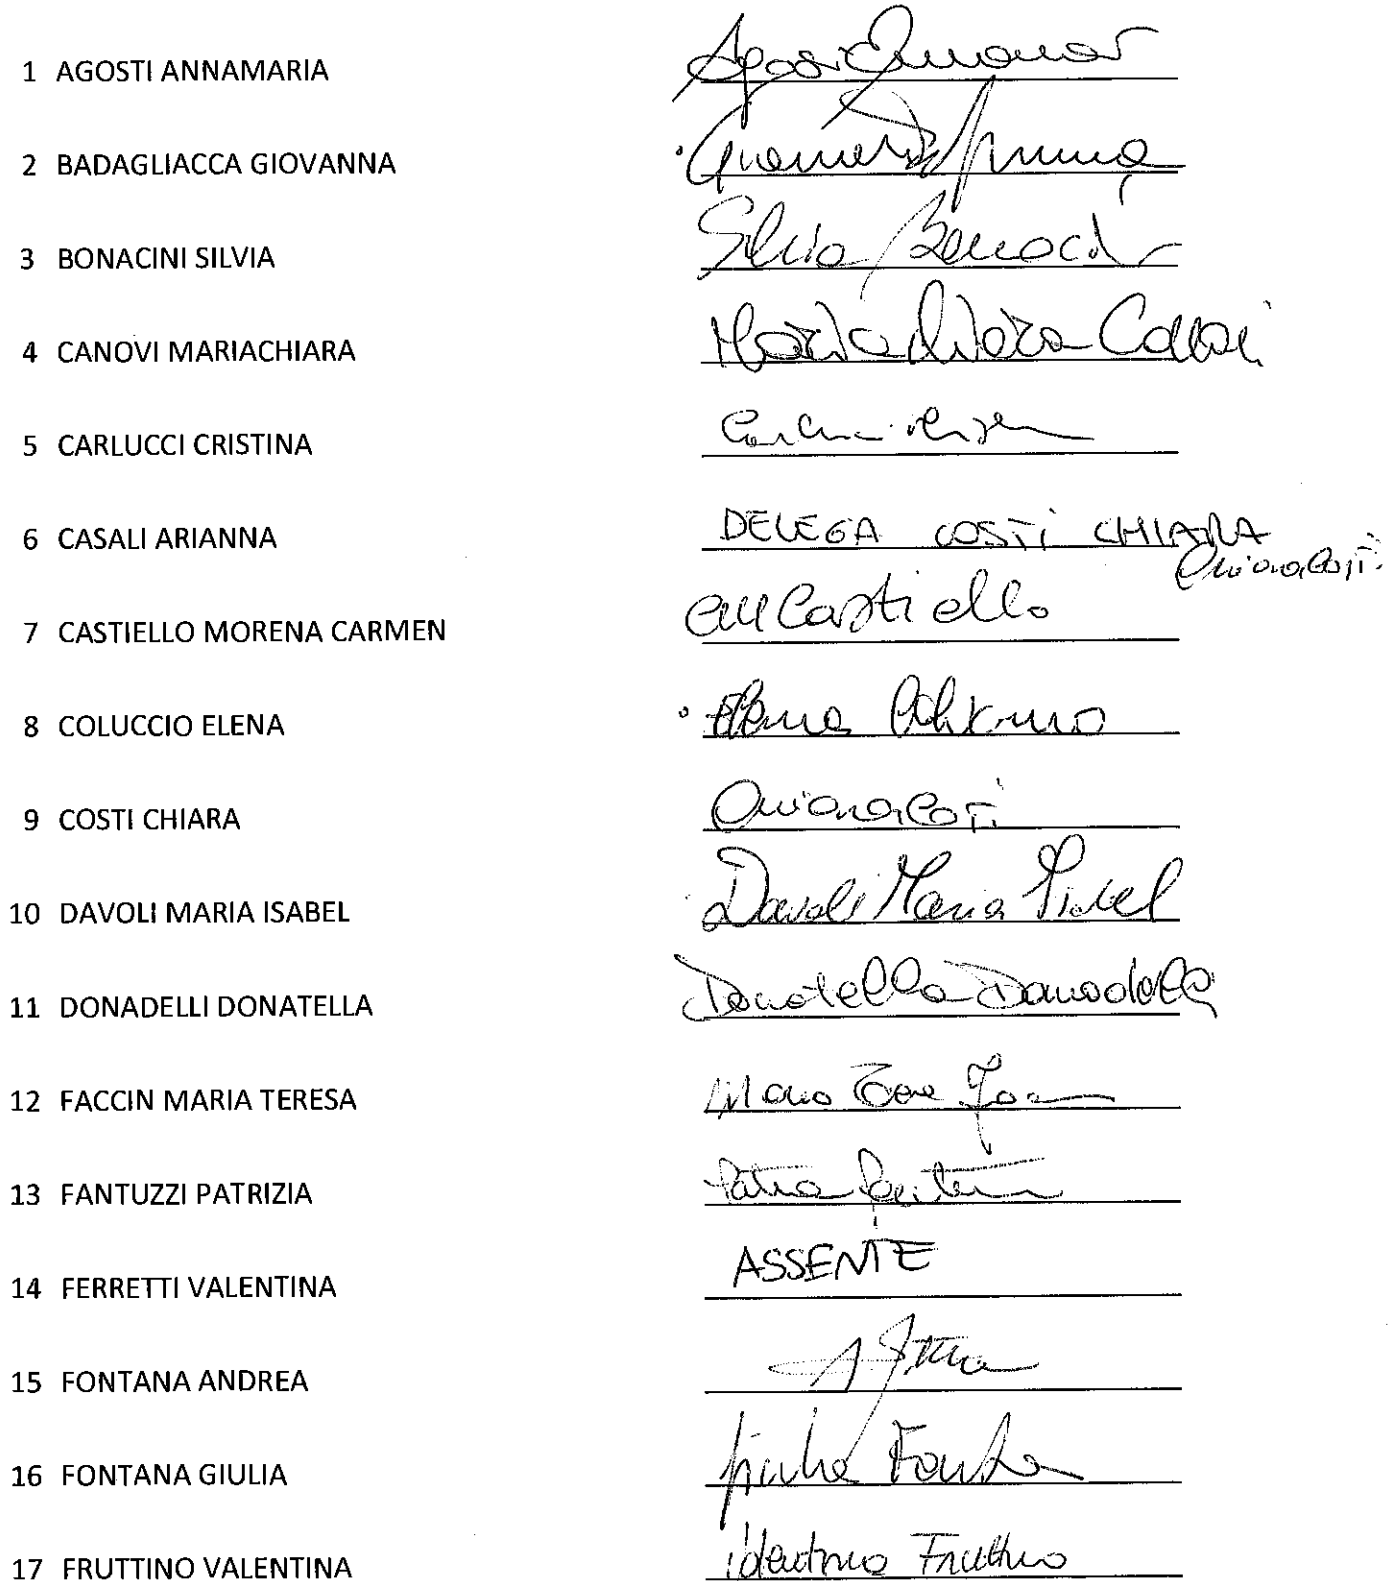 1 AGOSTI ANNAMARIA
2 BADAGLIACCA GIOVANNA
3 BONACINI SILVIA Silvia Bonacini
4 CANOVI MARIACHIARA Mariachiara Canovi
5 CARLUCCI CRISTINA
6 CASALI ARIANNA DELEGA COSTI CHIARA
Chiara Costi
7 CASTIELLO MORENA CARMEN Castiello
8 COLUCCIO ELENA Elena
9 COSTI CHIARA Chiara Costi
10 DAVOLI MARIA ISABEL Davoli Maria Isabel
11 DONADELLI DONATELLA Donatella Donadelli
12 FACCIN MARIA TERESA
13 FANTUZZI PATRIZIA
14 FERRETTI VALENTINA ASSENTE
15 FONTANA ANDREA
16 FONTANA GIULIA Giulia Fontana
17 FRUTTINO VALENTINA Valentina Fruttino